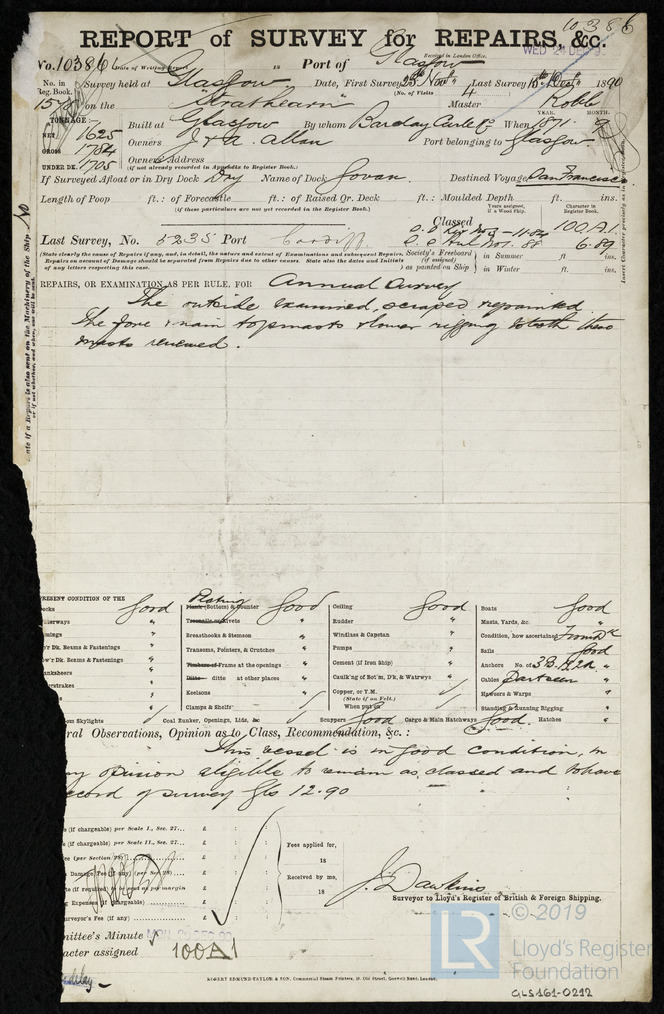 10386
REPORT of SURVEY for REPAIRS, &c.
Received in London Office,
WED. 24 DEC 9
No. 10386 Port of Glasgow
No. in Reg. Book. Survey held at Glasgow Date, First Survey 25th Novr Last Survey 15th Decr 1890
(No. of Visits 4
on the "Strathearn" Master Noble
TONNAGE:— YEAR. MONTH.
NET 1625 Built at Glasgow By whom Barclay Curle & Co When 1871
GROSS 1704 Owners J & A. Allan Port belonging to Glasgow
UNDER DK. 1705 Owners' Address
(if not already recorded in Appendix to Register Book.)
If Surveyed Afloat or in Dry Dock Dry Name of Dock Govan. Destined Voyage San Francisco
Length of Poop ft.: of Forecastle ft.: of Raised Qr. Deck ft.: Moulded Depth ft. ins.
(if these particulars are not yet recorded in the Register Book.)
Classed
Years assigned, if a Wood Ship.
Character in Register Book.
100.A.1.
Last Survey, No. 5235 Port Cardiff 88 6.89
(State clearly the cause of Repairs if any, and, in detail, the nature and extent of Examinations and subsequent Repairs.
Repairs on account of Damage should be separated from Repairs due to other causes. State also the dates and initials
of any letters respecting this case.
Society's Freeboard (if assigned) as painted on Ship
in Summer ft. ins.
in Winter ft. ins.
REPAIRS, OR EXAMINATION AS PER RULE, FOR Annual Survey
The outside examined, scraped & repainted
The fore & main topmasts & lower rigging to both these
masts renewed.
PRESENT CONDITION OF THE
ecks Good
aterways "
w'r Dk. Beams & Fastenings "
Plating
Plank (Bottom) & Counter Good
Treenails or Rivets "
Breasthooks & Stemson "
Transoms, Pointers, & Crutches "
Timbers or Frame at the openings "
Ditto ditto at other places "
Keelsons "
Clamps & Shelfs "
Ceiling Good
Rudder "
Windlass & Capstan "
Pumps "
Cement (if Iron Ship) "
Caulk'ng of Bot'm, D'k, & Watrwys "
Copper, or Y.M.
(State if on Felt.)
When put on
Boats Good
Masts, Yards, &c. "
Condition, how ascertained From Dk
Sails Good
Anchors No. of 3B. 1.2.a. "
Cables Part seen "
Hawsers & Warps "
Standing & Running Rigging "
om Skylights Coal Bunker, Openings, Lids, &c Scuppers Good Cargo & Main Hatchways Good. Hatches "
ral Observations, Opinion as to Class, Recommendation, &c.:
This vessel is in good condition, in
my opinion eligible to remain as classed and to have
record of survey Gls 12.90
e (if chargeable) per Scale I., Sec. 27... £
(if chargeable) per Scale II., Sec. 27... £
Damage Fee (if any) (per Sec. 28) £
g Expenses (if chargeable) £
urveyor's Fee (if any) £
Fees applied for,
18
Received by me,
18
J. Dawkins
Surveyor to Lloyd's Register of British & Foreign Shipping.
mittee's Minute
acter assigned 100A1
ROBERT EDMUND TAYLOR & SON, Commercial Steam Printers, 19, Old Street, Goswell Road, London.
LR
© 2019
Lloyd's Register
Foundation
GLS161-0292